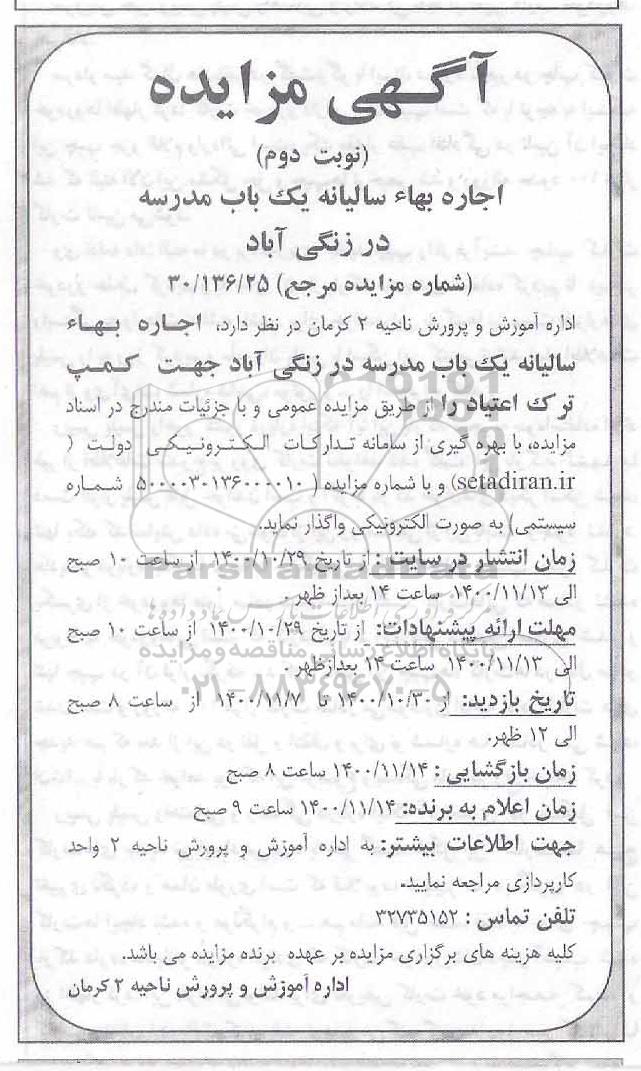 آگهی مزایده
(نوبت دوم)
اجاره بهاء سالیانه یک باب مدرسه
در زنگی آباد
(شماره مزایده مرجع) ۳۰/۱۳۶/۲۵
اداره آموزش و پرورش ناحیه ۲ کرمان در نظر دارد، اجاره بهاء
سالیانه یک باب مدرسه در زنگی آباد جهت کمپ
ترک اعتیاد را از طریق مزایده عمومی و با جزئیات مندرج در اسناد
مزایده، با بهره گیری از سامانه تدارکات الکترونیکی دولت (
setadiran.ir) و با شماره مزایده ( ۵۰۰۰۰۳۰۱۳۶۰۰۰۰۱۰ شماره
سیستمی) به صورت الکترونیکی واگذار نماید.
زمان انتشار در سایت : از تاریخ ۱۴۰۰/۱۰/۲۹ از ساعت ۱۰ صبح
الی ۱۴۰۰/۱۱/۱۳ ساعت ۱۴ بعداز ظهر .
مهلت ارائه پیشنهادات: از تاریخ ۱۴۰۰/۱۰/۲۹ از ساعت ۱۰ صبح
الی ۱۴۰۰/۱۱/۱۳ ساعت ۱۴ بعدازظهر .
تاریخ بازدید: از ۱۴۰۰/۱۰/۳۰ تا ۱۴۰۰/۱۱/۷ از ساعت ۸ صبح
الی ۱۲ ظهر.
زمان بازگشایی : ۱۴۰۰/۱۱/۱۴ ساعت ۸ صبح
زمان اعلام به برنده: ۱۴۰۰/۱۱/۱۴ ساعت ۹ صبح
جهت اطلاعات بیشتر: به اداره آموزش و پرورش ناحیه ۲ واحد
کارپردازی مراجعه نمایید.
تلفن تماس : ۳۲۷۳۵۱۵۲
کلیه هزینه های برگزاری مزایده بر عهده برنده مزایده می باشد.
اداره آموزش و پرورش ناحیه ۲ کرمان
ParsNamadData
پایگاه اطلاع رسانی مناقصه و مزایده
۰۲۱-۸۸۳۴۹۶۷۰-۵